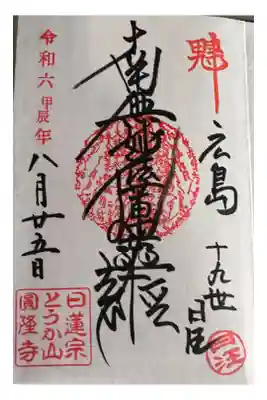 広島
十九世
南無妙法蓮華經
令和六甲辰年
八月廿五日
日蓮宗
とうか山
圓隆寺